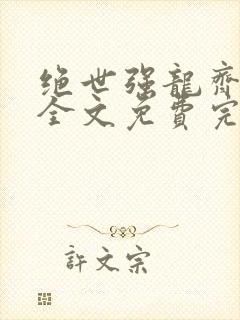 绝世强龍齊
全文免費完
許文宗